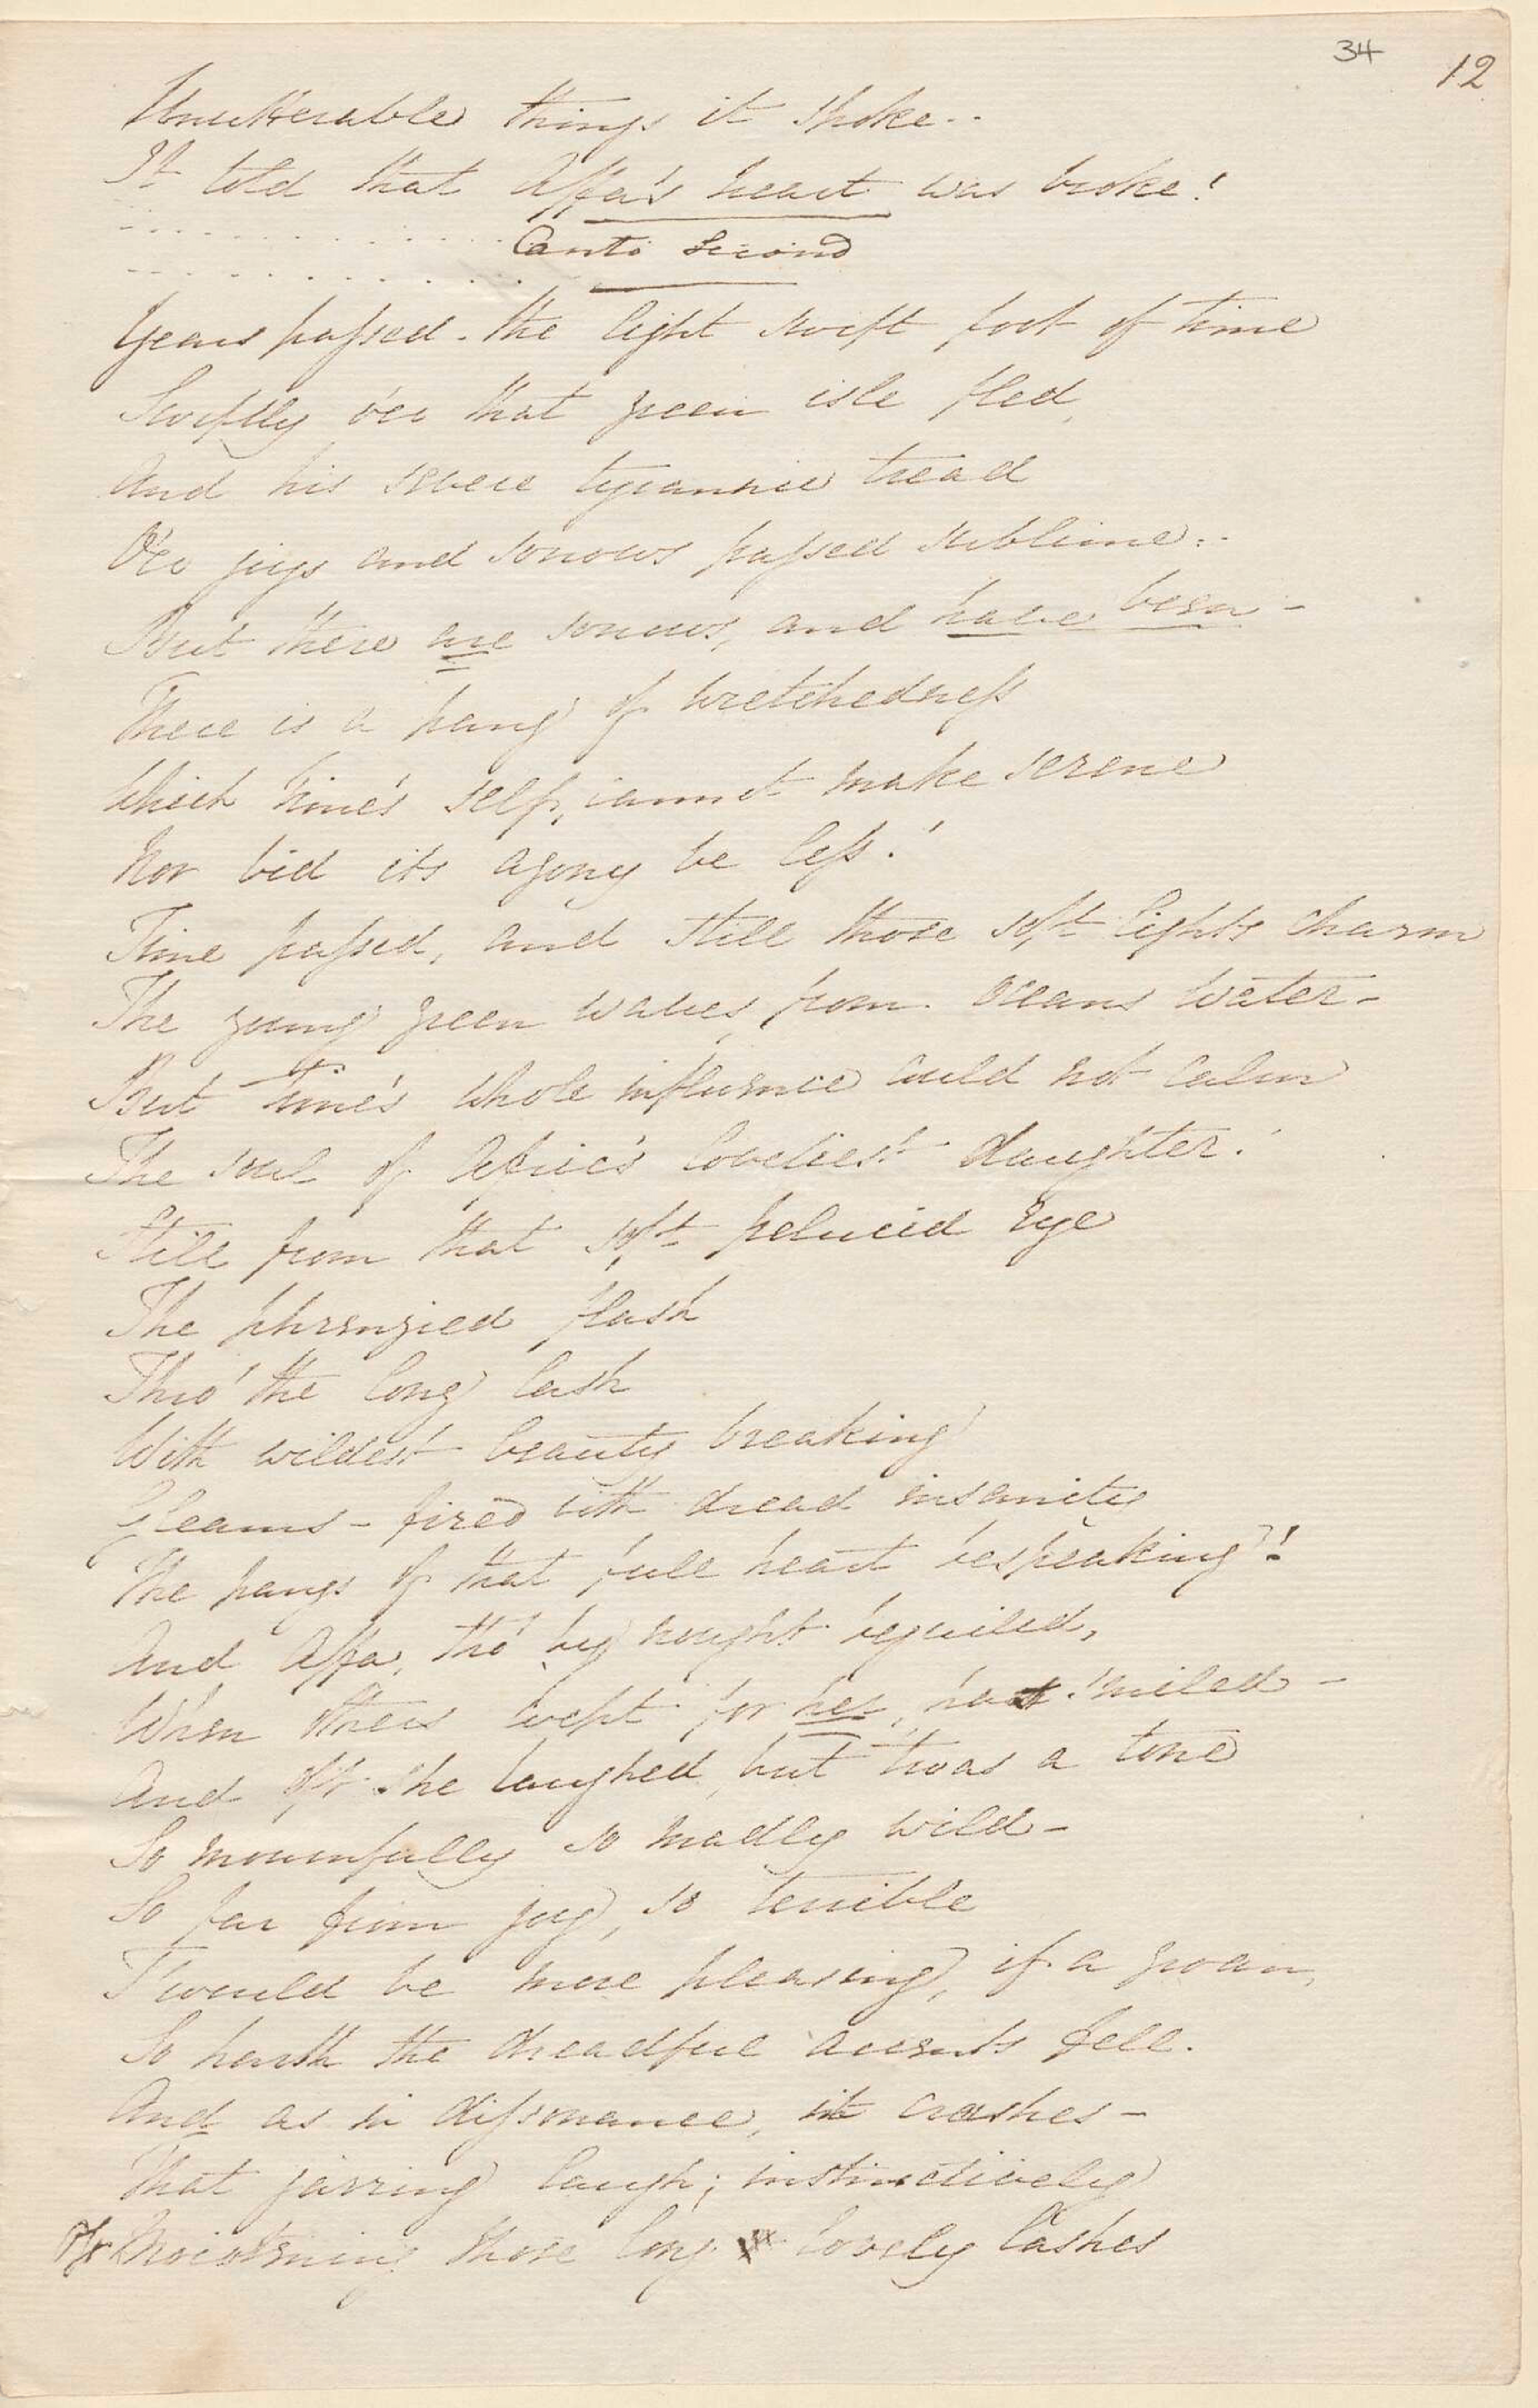 34
12
Unutterable things it spoke..
It told that Affa's heart was broke!
Canto Second
Years passed. the light swift foot of time
Swiftly o'er that green isle fled,
And his severe tyrannic tread
O'er joys and sorrows passed sublime..
But there are sorrows, and have been -
There is a pang of wretchedness
Which time's self, cannot make serene
Nor bid its agony be less!
Time passed, and still those soft lights charm
The young green waves, from oceans water -
But time's whole influence could not calm
The soul of Afric's loveliest daughter!
Still from that soft pelucid eye
The phrenzied flash
Thro' the long lash
With wildest beauty breaking
Gleams - fired with dread insanity
The pangs of that full heart bespeaking!
And Affa, tho' by nought beguiled,
When others wept for her, has smiled -
And oft she laughed, but twas a tone
So mournfully so madly wild -
So far from joy, so terrible
T'would be more pleasing, if a groan,
So harsh the dreadful accents fell.
And as in dissonance, it crashes -
That jarring laugh; instinctively
Moistening those long lovely lashes